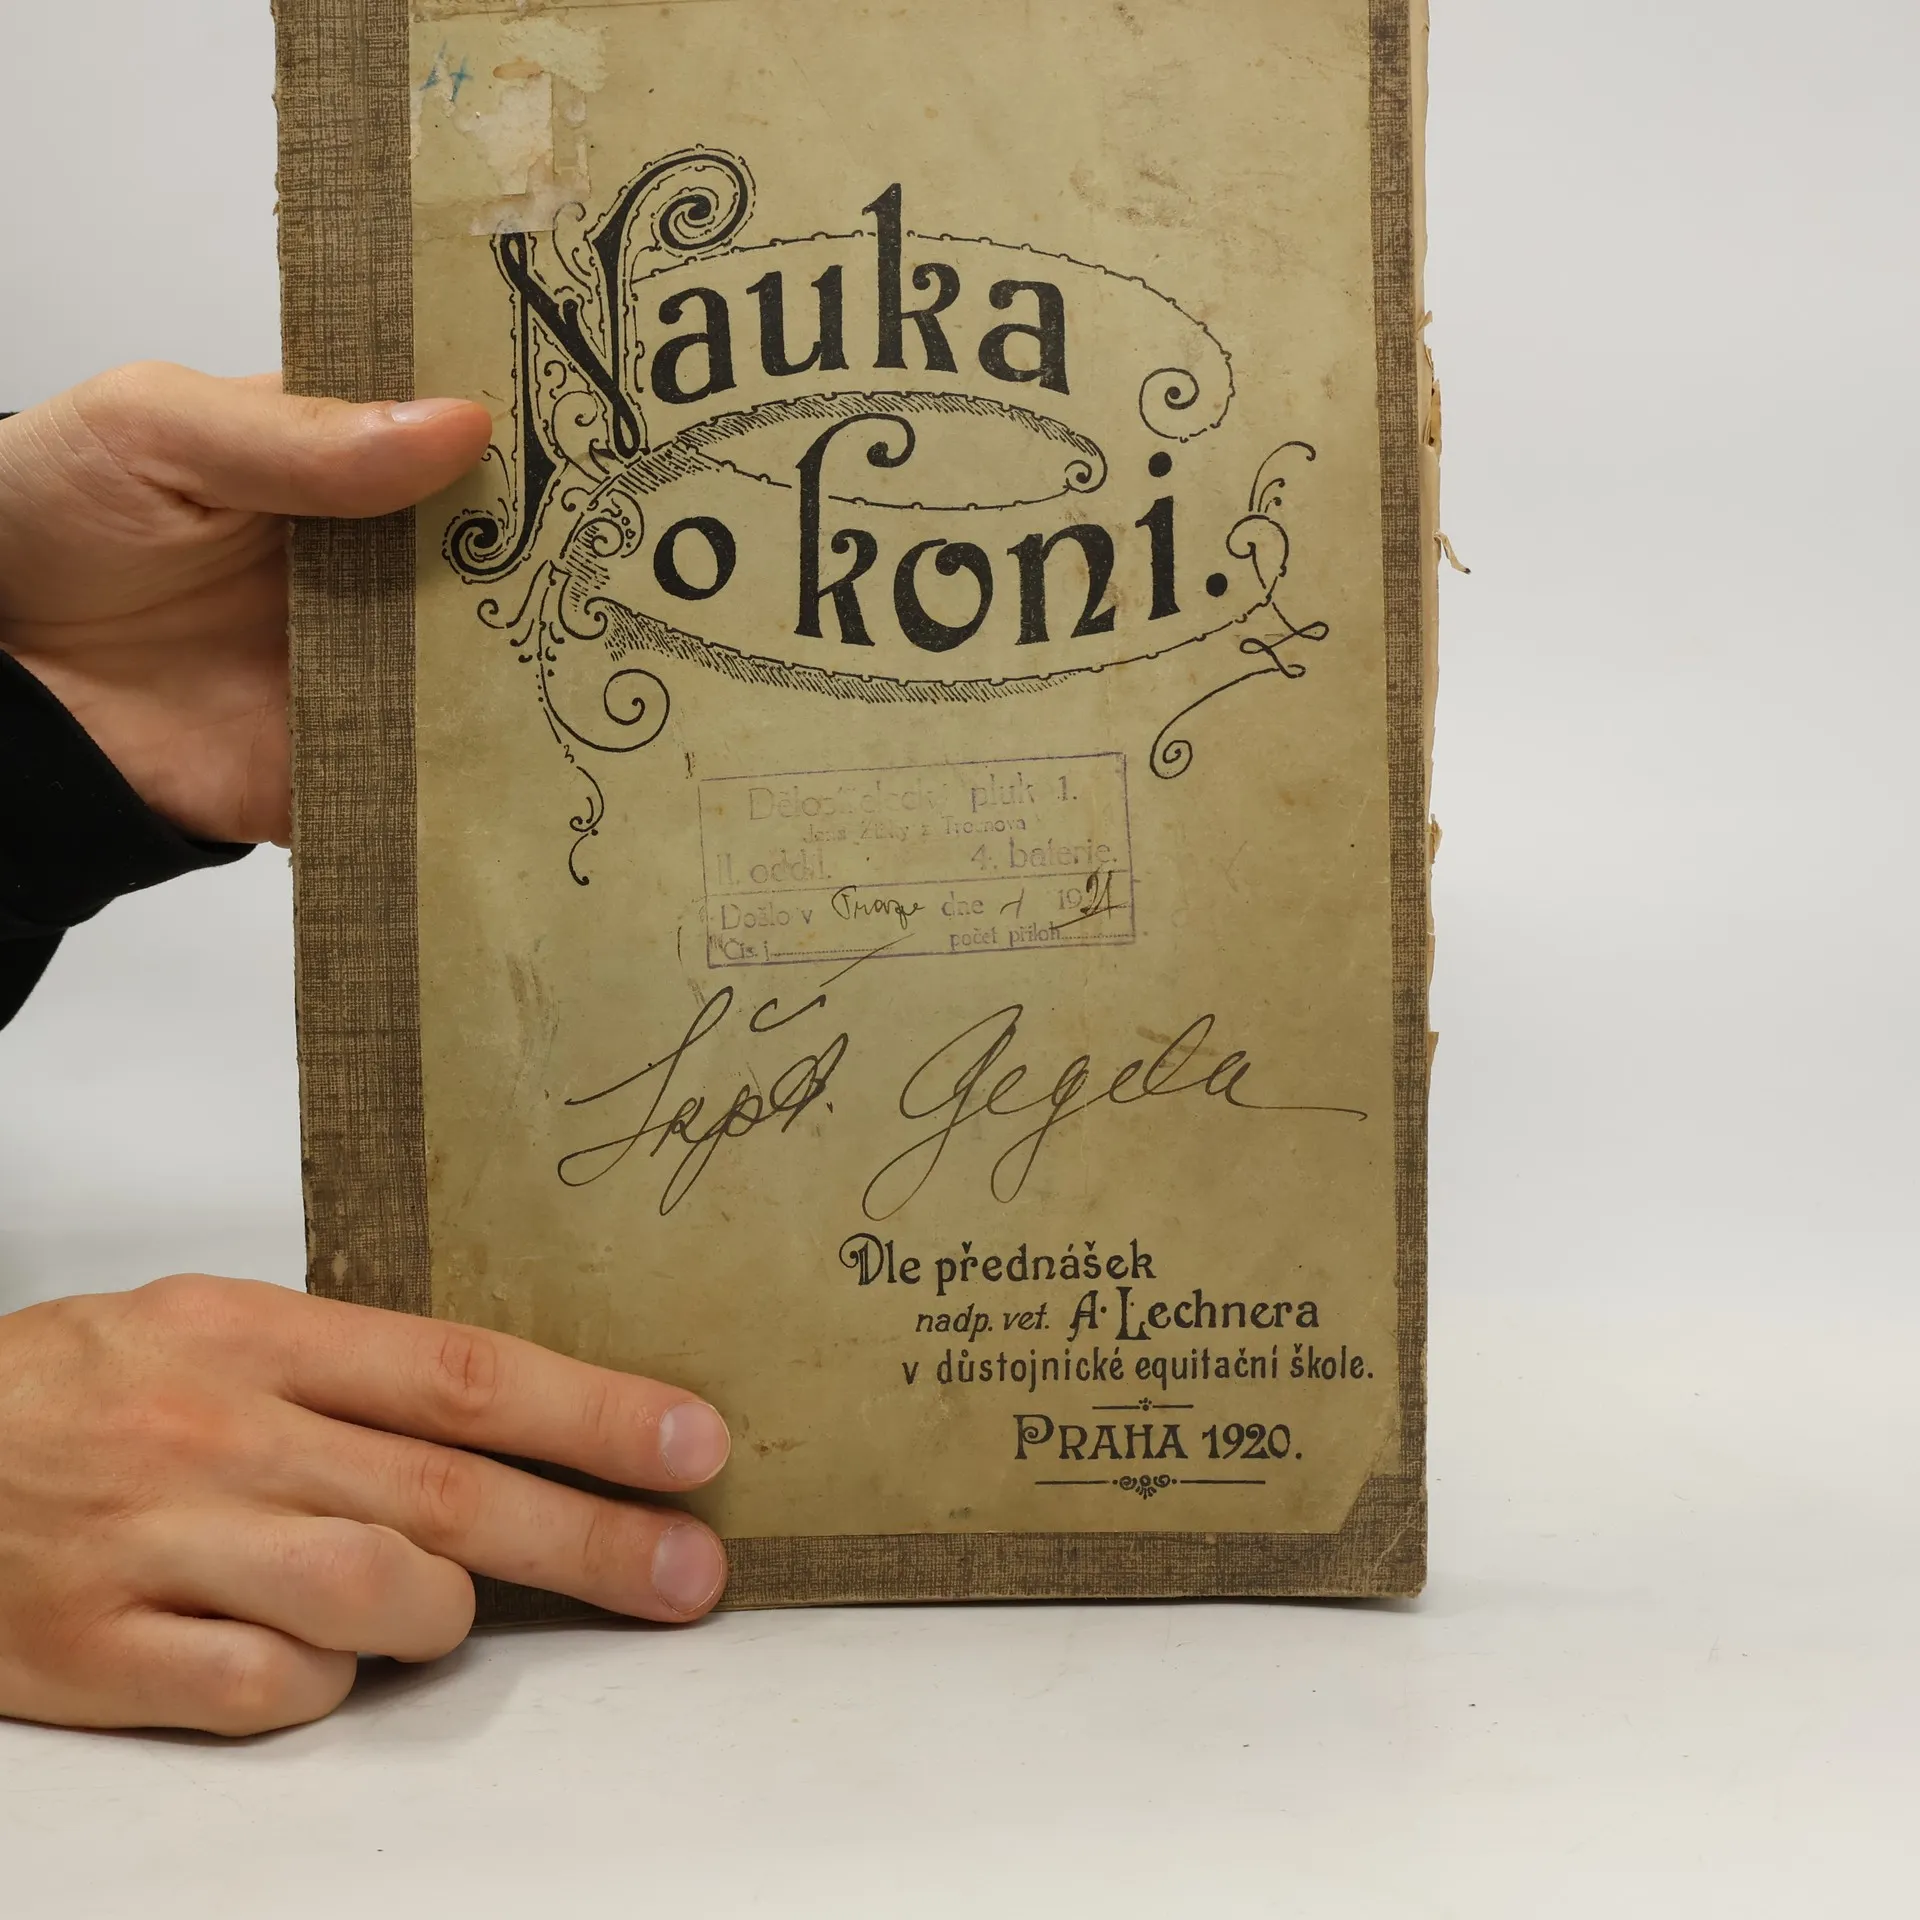 Nauka
o koni.
Dělostřelecký pluk 1.
Jana Žižky z Trocnova
II. oddíl. 4. baterie.
Došlo v Praze dne 1 1921
Čís. j. počet příloh
Škpt. Gegela
Dle přednášek
nadp. vet. A. Lechnera
v důstojnické equitační škole.
PRAHA 1920.